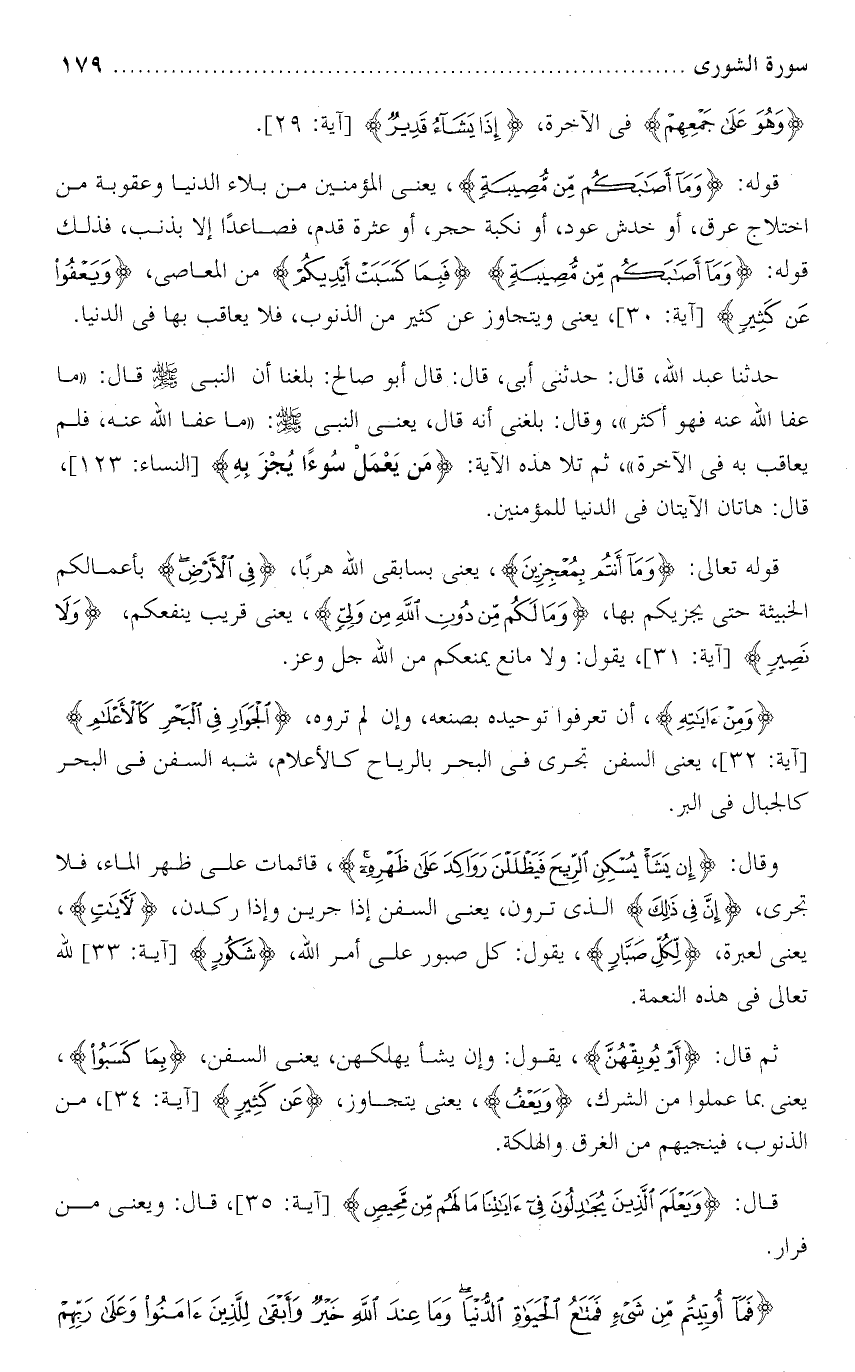 سورة الشورى ........................................................ ١٧٩
﴿وَهُوَ عَلَىٰ جَمْعِهِمْ﴾ فى الآخرة، ﴿إِذَا يَشَآءُ قَدِيرٌ﴾ [آية: ٢٩].
قوله: ﴿وَمَآ أَصَٰبَكُم مِّن مُّصِيبَةٍ﴾، يعنى المؤمنين من بلاء الدنيا وعقوبة من
اختلاج عرق، أو خدش عود، أو نكبة حجر، أو عثرة قدم، فصاعدًا إلا بذنب، فذلك
قوله: ﴿وَمَآ أَصَٰبَكُم مِّن مُّصِيبَةٍ﴾ ﴿فَبِمَا كَسَبَتْ أَيْدِيكُمْ﴾ من المعاصى، ﴿وَيَعْفُوا۟
عَن كَثِيرٍ﴾ [آية: ٣٠]، يعنى ويتجاوز عن كثير من الذنوب، فلا يعاقب بها فى الدنيا.
حدثنا عبد الله، قال: حدثنى أبى، قال: قال أبو صالح: بلغنا أن النبى ﷺ قال: «ما
عفا الله عنه فهو أكثر»، وقال: بلغنى أنه قال، يعنى النبى ﷺ: «ما عفا الله عنه، فلم
يعاقب به فى الآخرة»، ثم تلا هذه الآية: ﴿مَن يَعْمَلْ سُوءًا يُجْزَ بِهِ﴾ [النساء: ١٢٣]،
قال: هاتان الآيتان فى الدنيا للمؤمنين.
قوله تعالى: ﴿وَمَآ أَنتُم بِمُعْجِزِينَ﴾، يعنى بسابقى الله هربًا، ﴿فِى ٱلْأَرْضِ ۖ﴾ بأعمالكم
الخبيثة حتى يجزيكم بها، ﴿وَمَا لَكُم مِّن دُونِ ٱللَّهِ مِن وَلِىٍّ﴾، يعنى قريب ينفعكم، ﴿وَلَا
نَصِيرٍ﴾ [آية: ٣١]، يقول: ولا مانع يمنعكم من الله جل وعز.
﴿وَمِنْ ءَايَٰتِهِ﴾، أن تعرفوا توحيده بصنعه، وإن لم تروه، ﴿ٱلْجَوَارِ فِى ٱلْبَحْرِ كَٱلْأَعْلَٰمِ﴾
[آية: ٣٢]، يعنى السفن تجرى فى البحر بالرياح كالأعلام، شبه السفن فى البحر
كالجبال فى البر.
وقال: ﴿إِن يَشَأْ يُسْكِنِ ٱلرِّيحَ فَيَظْلَلْنَ رَوَاكِدَ عَلَىٰ ظَهْرِهِۦٓ ۚ﴾، قائمات على ظهر الماء، فلا
تجرى، ﴿إِنَّ فِى ذَٰلِكَ﴾ الذى ترون، يعنى السفن إذا جرين وإذا ركدن، ﴿لَءَايَٰتٍ﴾،
يعنى لعبرة، ﴿لِّكُلِّ صَبَّارٍ﴾، يقول: كل صبور على أمر الله، ﴿شَكُورٍ﴾ [آية: ٣٣] لله
تعالى فى هذه النعمة.
ثم قال: ﴿أَوْ يُوبِقْهُنَّ﴾، يقول: وإن يشأ يهلكهن، يعنى السفن، ﴿بِمَا كَسَبُوا۟﴾،
يعنى بما عملوا من الشرك، ﴿وَيَعْفُ﴾، يعنى يتجاوز، ﴿عَن كَثِيرٍ﴾ [آية: ٣٤]، من
الذنوب، فينجيهم من الغرق والهلكة.
قال: ﴿وَيَعْلَمَ ٱلَّذِينَ يُجَٰدِلُونَ فِىٓ ءَايَٰتِنَا مَا لَهُم مِّن مَّحِيصٍ﴾ [آية: ٣٥]، قال: ويعنى من
فرار.
﴿فَمَآ أُوتِيتُم مِّن شَىْءٍ فَمَتَٰعُ ٱلْحَيَوٰةِ ٱلدُّنْيَا ۖ وَمَا عِندَ ٱللَّهِ خَيْرٌ وَأَبْقَىٰ لِلَّذِينَ ءَامَنُوا۟ وَعَلَىٰ رَبِّهِمْ